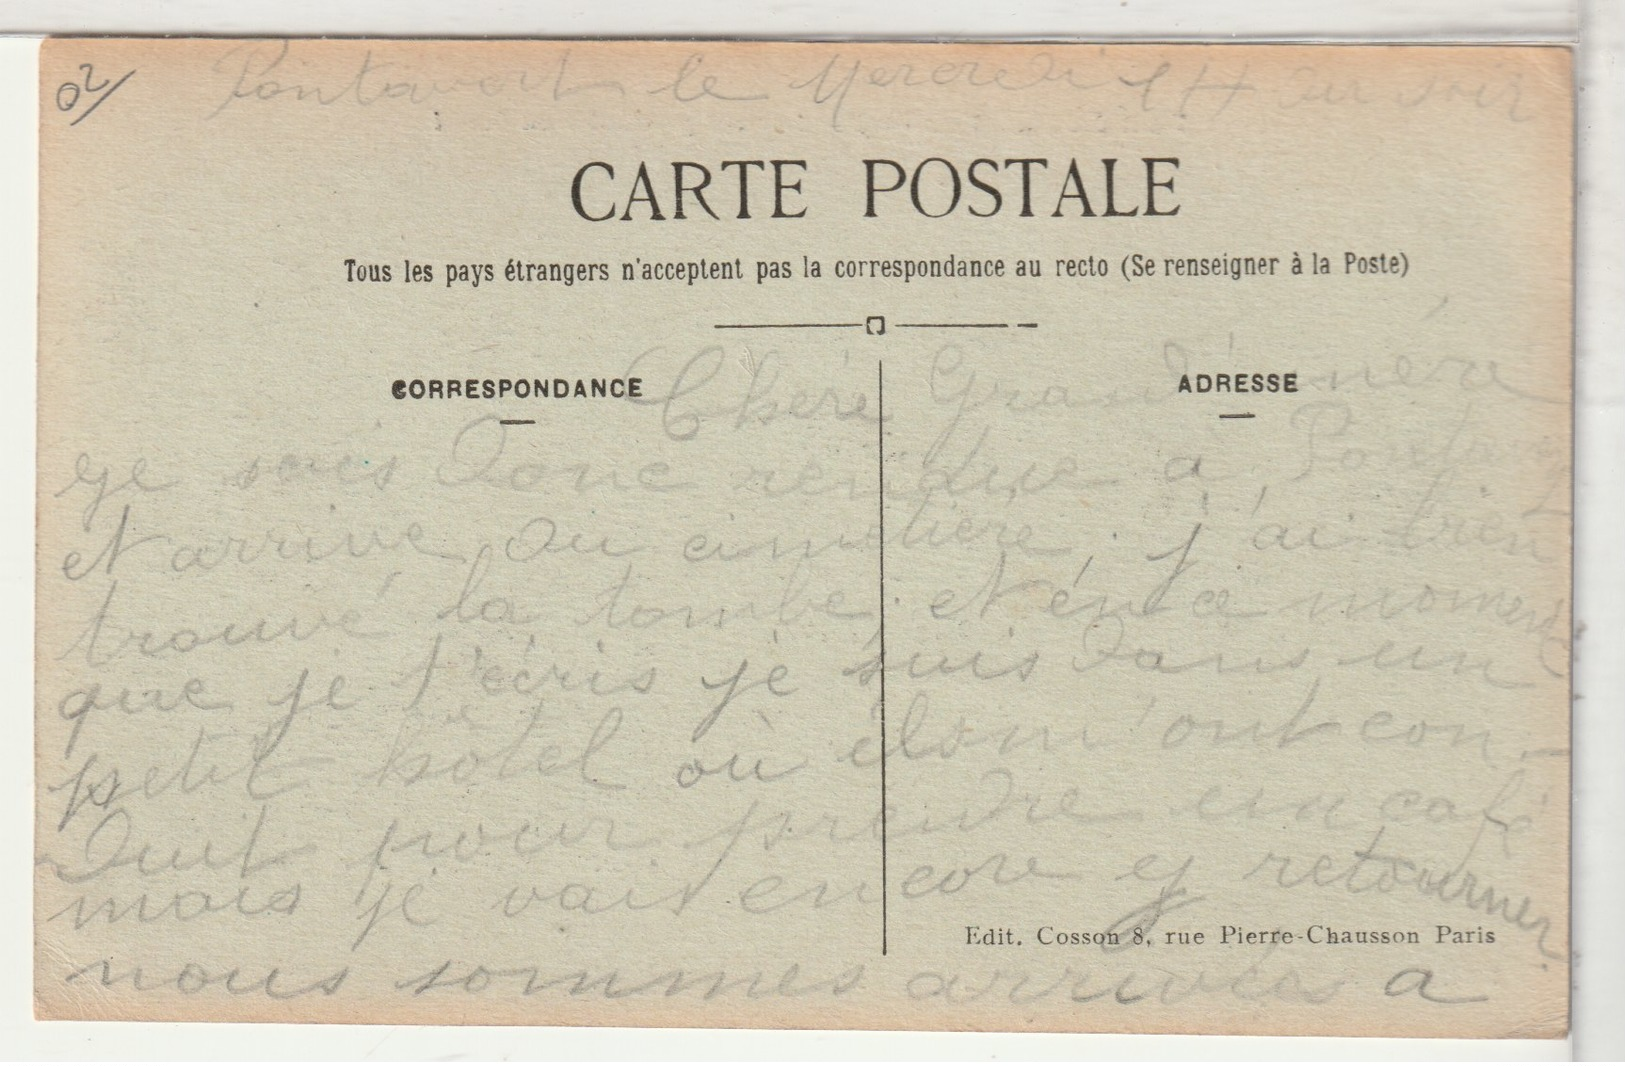 02/
Pontavert le Mercredi 14 au soir
CARTE POSTALE
Tous les pays étrangers n'acceptent pas la correspondance au recto (Se renseigner à la Poste)
CORRESPONDANCE
ADRESSE
Chère Grand'mère
Je suis donc rendue a
et arrivé au cimetière, j'ai bien
trouvé la tombe, et en ce moment
que je t'écris je suis dans un
petit hôtel où ils m'ont con-
duit pour prendre un café
mais je vais encore y retourner.
Edit. Cosson 8, rue Pierre-Chausson Paris
nous sommes arrivés a